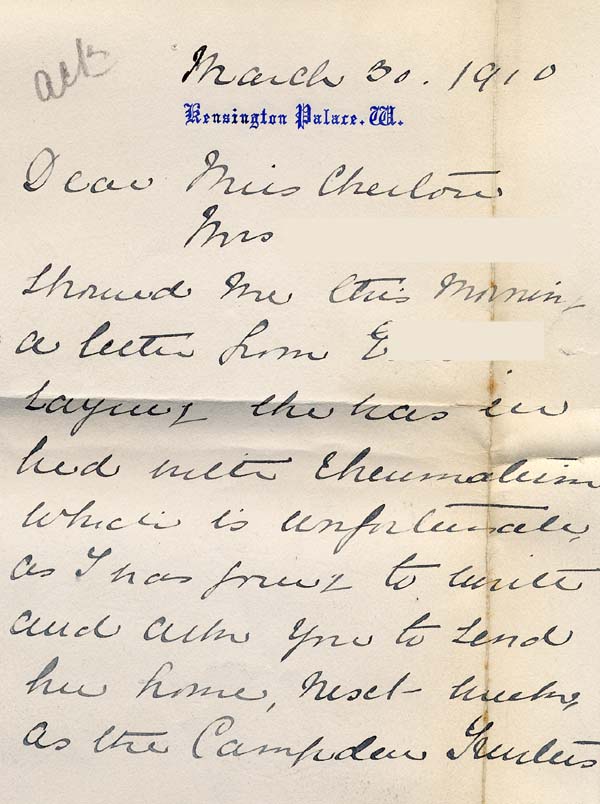 ack
March 30. 1910
Kensington Palace. W.
Dear Miss Charlton
Mrs
showed me this morning
a letter from E
saying she was in
bed with rheumatism
which is unfortunate,
as I was going to write
and ask you to send
her home, next week,
as the Campden Trustees